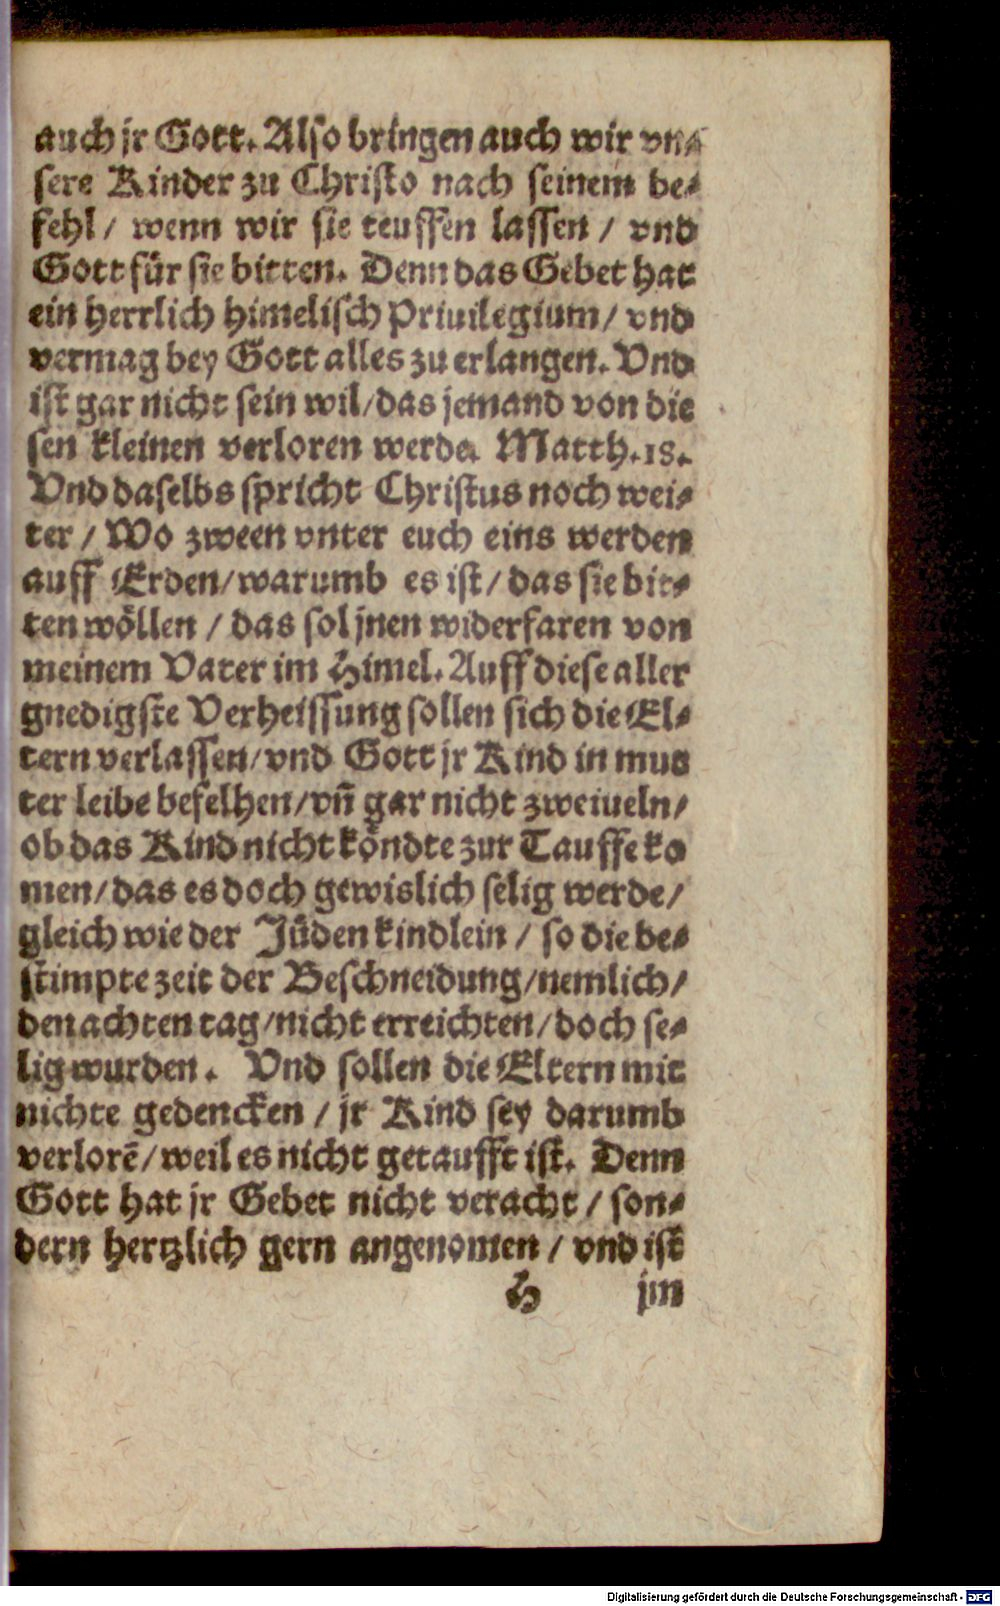 auch jr Gott. Also bringen auch wir vn⸗
sere Kinder zu Christo nach seinem be⸗
fehl / wenn wir sie teuffen lassen / vnd
Gott für sie bitten. Denn das Gebet hat
ein herrlich himelisch Priuilegium / vnd
vermag bey Gott alles zu erlangen. Vnd
ist gar nicht sein wil / das jemand von die
sen kleinen verloren werde. Matth. 18.
Vnd daselbs spricht Christus noch wei⸗
ter / Wo zween vnter euch eins werden
auff Erden / warumb es ist / das sie bit⸗
ten wöllen / das sol jnen widerfaren von
meinem Vater im Himel. Auff diese aller
gnedigste Verheissung sollen sich die El⸗
tern verlassen / vnd Gott jr Kind in mut
ter leibe befelhen / vñ gar nicht zweiueln /
ob das Kind nicht köndte zur Tauffe ko
men / das es doch gewislich selig werde /
gleich wie der Jüden kindlein / so die be⸗
stimpte zeit der Beschneidung / nemlich /
den achten tag / nicht erreichten / doch se⸗
lig wurden. Vnd sollen die Eltern mit
nichte gedencken / jr Kind sey darumb
verlorē / weil es nicht getaufft ist. Denn
Gott hat jr Gebet nicht veracht / son⸗
dern hertzlich gern angenomen / vnd ist
H jm
Digitalisierung gefördert durch die Deutsche Forschungsgemeinschaft - DFG